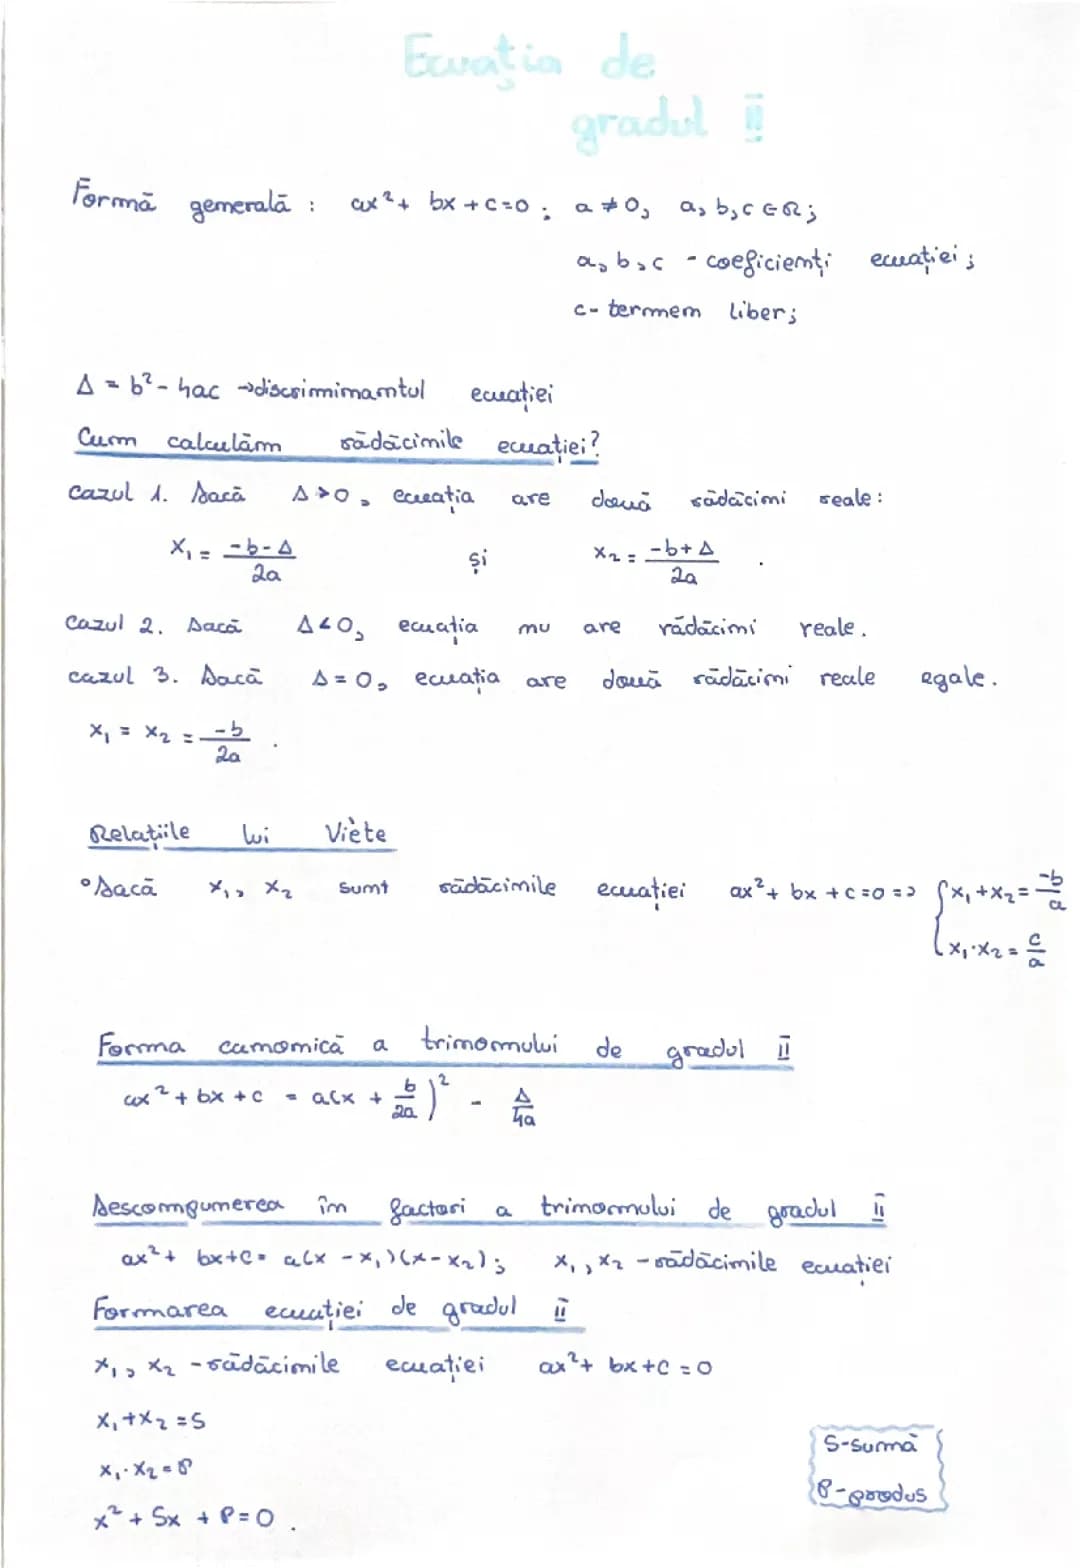 Ecuația de
gradul II
Formă generală : ax² + bx + c = 0 ; a ≠ 0, a, b, c ∈ R;
a, b, c - coeficienți ecuației ;
c - termen liber;
Δ = b² - 4ac → discriminantul ecuației
Cum calculăm rădăcinile ecuației?
Cazul 1. Dacă Δ > 0, ecuația are două rădăcini reale:
x₁ = (-b - Δ)/2a și x₂ = (-b + Δ)/2a .
Cazul 2. Dacă Δ < 0, ecuația nu are rădăcini reale.
cazul 3. Dacă Δ = 0, ecuația are două rădăcini reale egale.
x₁ = x₂ = -b/2a .
Relațiile lui Viète
° Dacă x₁, x₂ sunt rădăcinile ecuației ax² + bx + c = 0 => { x₁ + x₂ = -b/a
x₁ · x₂ = c/a
Forma canonică a trinomului de gradul II
ax² + bx + c = a(x + b/2a)² - Δ/4a
Descompunerea în factori a trinomului de gradul II
ax² + bx + c = a(x - x₁)(x - x₂); x₁, x₂ - rădăcinile ecuației
Formarea ecuației de gradul II
x₁, x₂ - rădăcinile ecuației ax² + bx + c = 0
x₁ + x₂ = S
x₁ · x₂ = P
x² + Sx + P = 0 .
S - sumă
P - produs